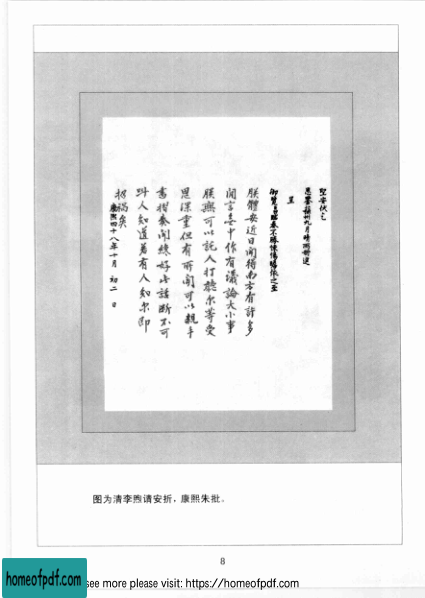 聖安伏乞
恩鑒蘇州九月晴雨冊進
呈
御覽
朕體安近日聞得南方有許多
閑言無中作有議論大小事
朕無可以託人打聽尔等受
恩深重但有所聞可以親手
書摺奏聞纔好此話斷不可
叫人知道若有人知尔即
招禍矣
康熙四十八年十月 初二 日
图为清李煦请安折，康熙朱批。
8
homeofpdf.com
see more please visit: https://homeofpdf.com